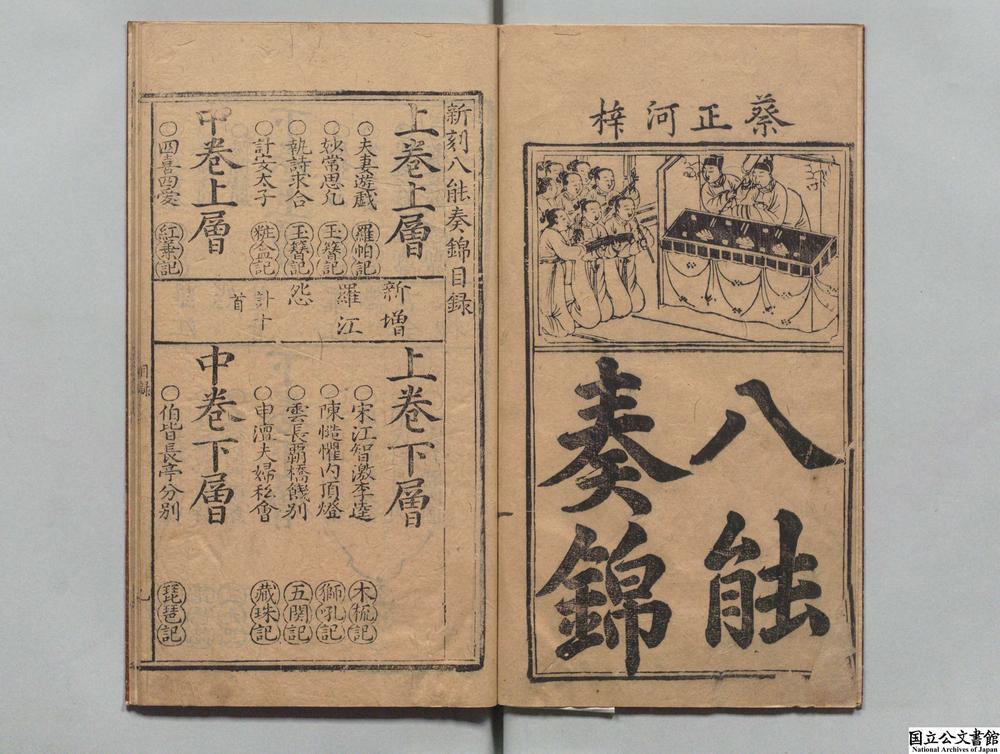 蔡正河梓
八能
奏錦
新刻八能奏錦目録
上卷上層
○夫妻遊戲 羅帕記
○妙常思凡 玉簪記
○執詩求合 玉簪記
○計安太子 粧盒記
中卷上層
○四喜四愛 紅葉記
新增
羅江
怨
計十
首
上卷下層
○宋江智激李逵 木梳記
○陳慥懼内頂燈 獅吼記
○雲長霸橋餞別 五関記
○申澶夫婦私會 藏珠記
中卷下層
○伯皆長亭分別 琵琶記
目録
国立公文書館
National Archives of Japan